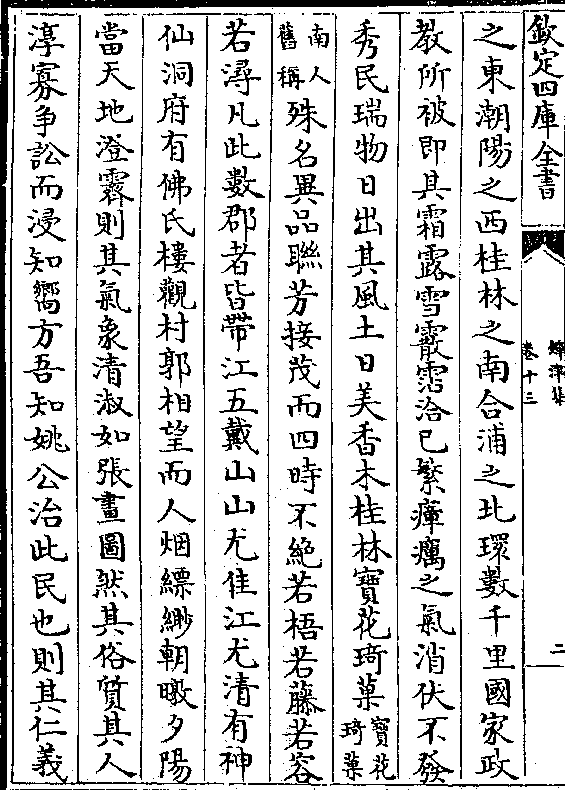 欽定四庫全書
鐔津集
卷十三
二
之東潮陽之西桂林之南合浦之北環數千里國家政
教所被即其霜露雪霰霑洽已繁瘴癘之氣消伏不發
秀民瑞物日出其風土日美香木桂林寶花琦菓寶花琦菓
南人舊稱殊名異品聯芳接茂而四時不絶若梧若藤若容
若潯凡此數郡者皆帶江五戴山山尤佳江尤清有神
仙洞府有佛氏樓觀村郭相望而人烟縹緲朝暾夕陽
當天地澄霽則其氣象清淑如張畫圖然其俗質其人
淳寡争訟而浸知嚮方吾知姚公治此民也則其仁義